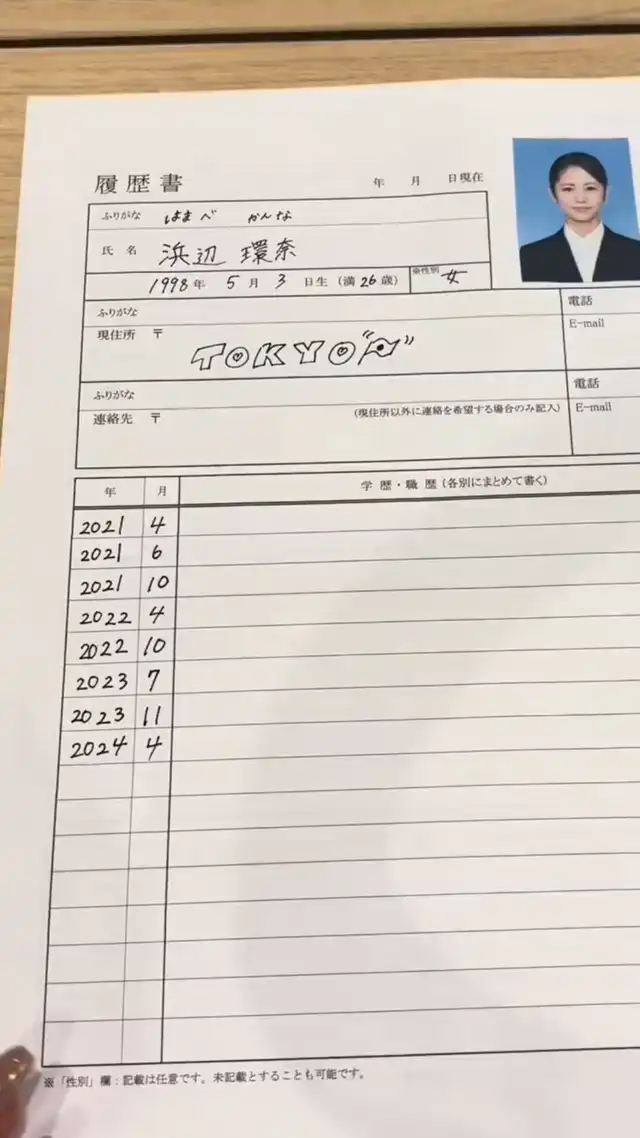 履歴書 年 月 日現在
ふりがな はまべ かんな
氏名 浜辺 環奈
1998年 5月 3日生(満26歳) ※性別 女
ふりがな 電話
現住所 〒 TOKYO E-mail
ふりがな 電話
連絡先 〒 (現住所以外に連絡を希望する場合のみ記入) E-mail
年 月 学歴・職歴(各別にまとめて書く)
2021 4
2021 6
2021 10
2022 4
2022 10
2023 7
2023 11
2024 4
※「性別」欄:記載は任意です。未記載とすることも可能です。